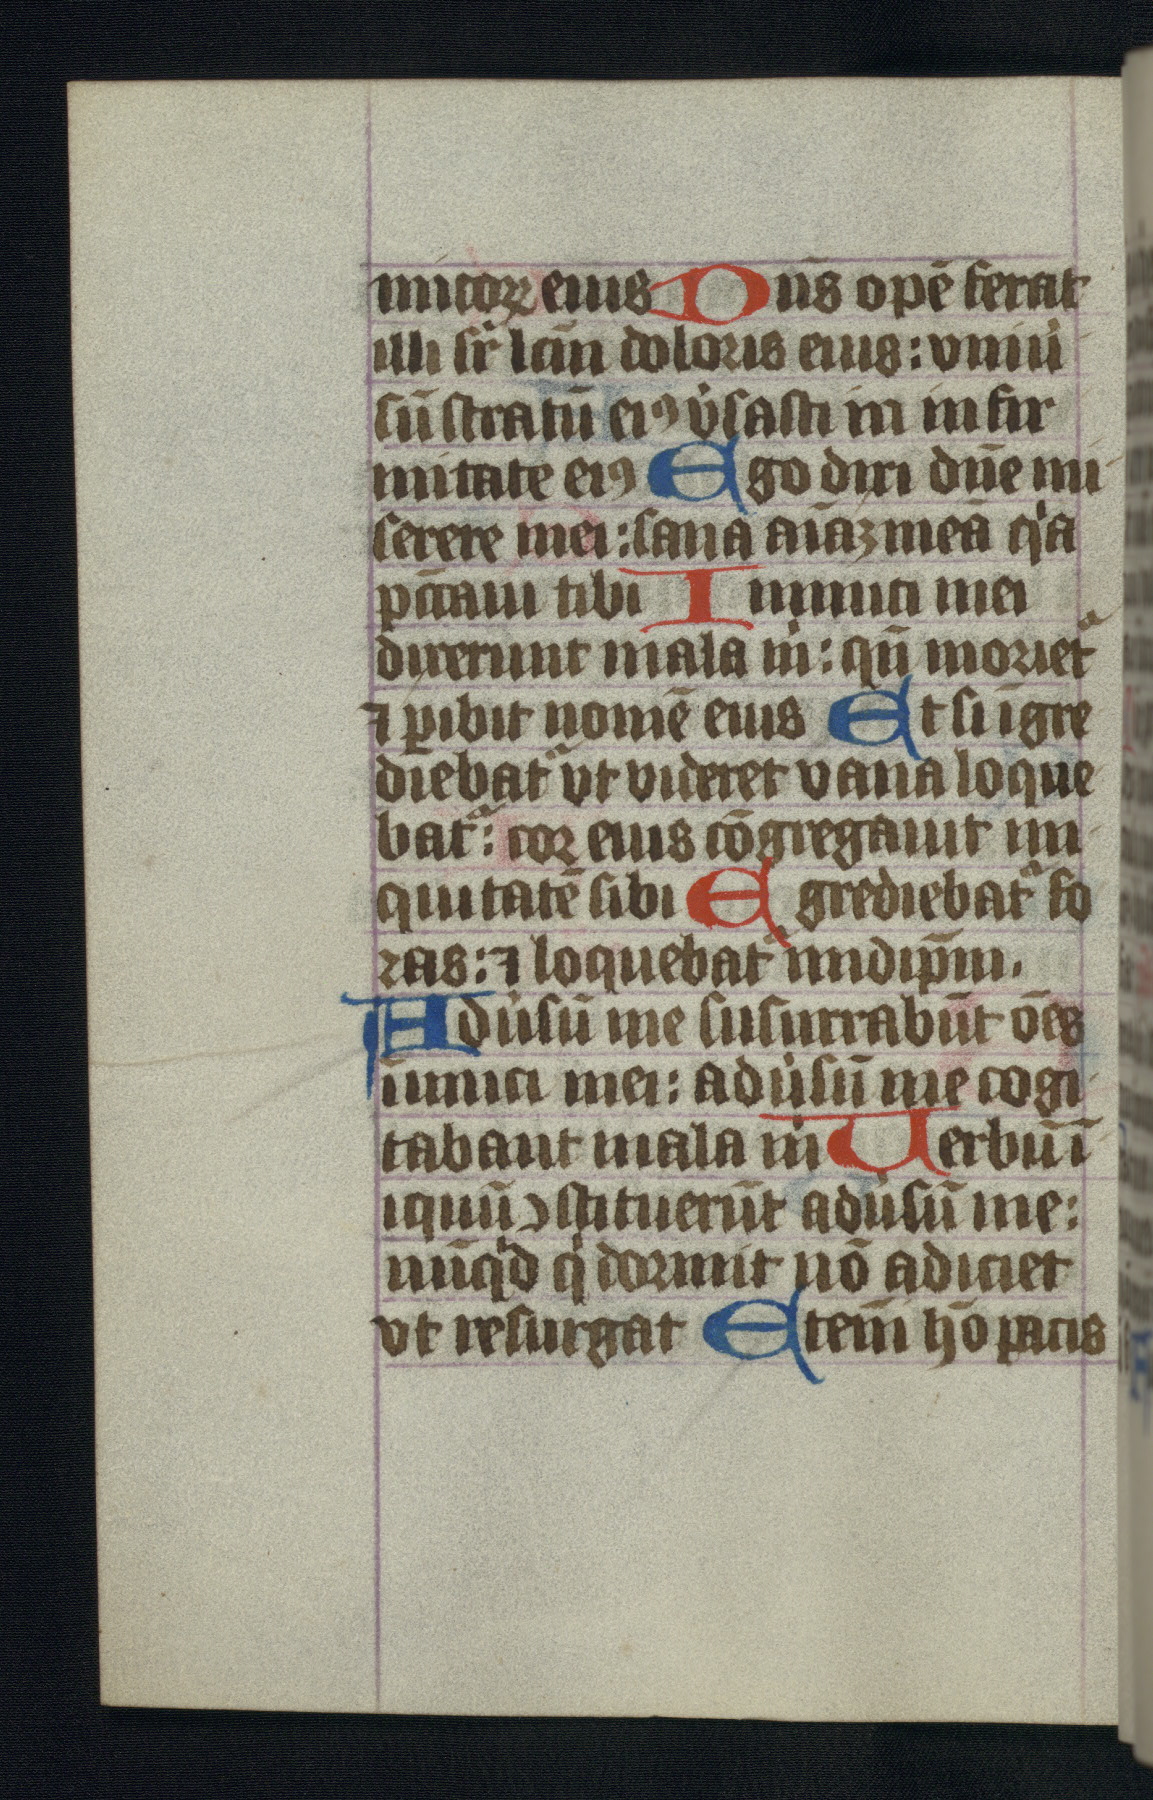 micoꝝ eius Dn̄s opē ferat
illi sr̄ lcm̄ doloris eius: vniū
sū stratū eiꝯ v̓sasti in infir
mitate eiꝯ Ego dixi dn̄e mi
serere mei: sana aīaʒ meā qͥa
pccaui tibi Inimici mei
dixerunt mala mͥ: qn̄ morietᷣ
⁊ ꝑibit nomē eius Et si īgre
diebatᷣ vt videret vana loque
batᷣ: cor eius cōgregauit ini
quitatē sibi Egrediebatᷣ fo
ras: ⁊ loquebatᷣ in idip̄m.
Adv̓sū me susurrabūt oēs
īimici mei: adv̓sū me cogi
tabant mala mͥ Uerbū ī
iquū ꝯstituerūt adv̓sū me:
nūqͥd qͥ dormit nō adiciet
vt resurgat Etem̄ hō pacis